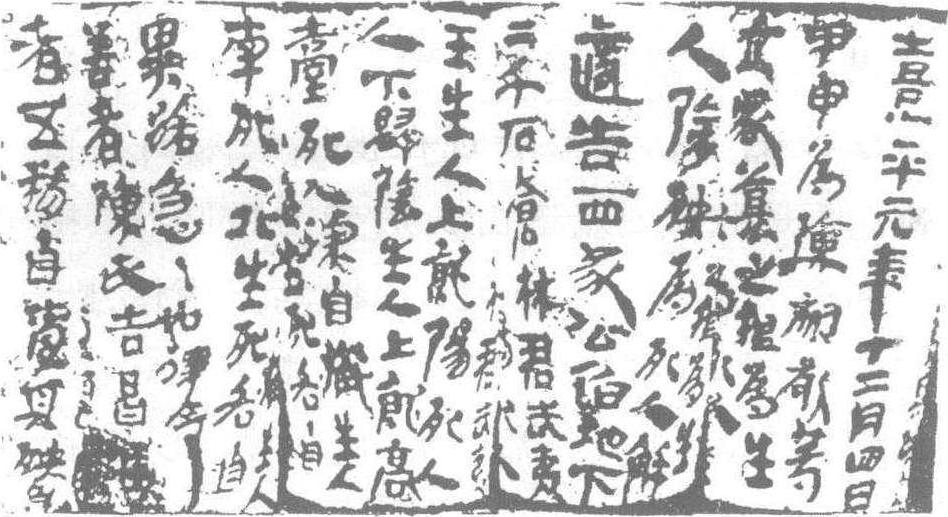 熹平元年十二月四日
甲申為陳叔敬等
立冢墓之根為生
人除殃為死人解
適告西冢公伯地下
二千石倉林君武夷
王生人上就陽死人
人下歸陰生人上就高
臺死人深自藏生人
南死人北生死各自
異路急急如律令
善者陳氏吉昌惡
者五精自受其殃